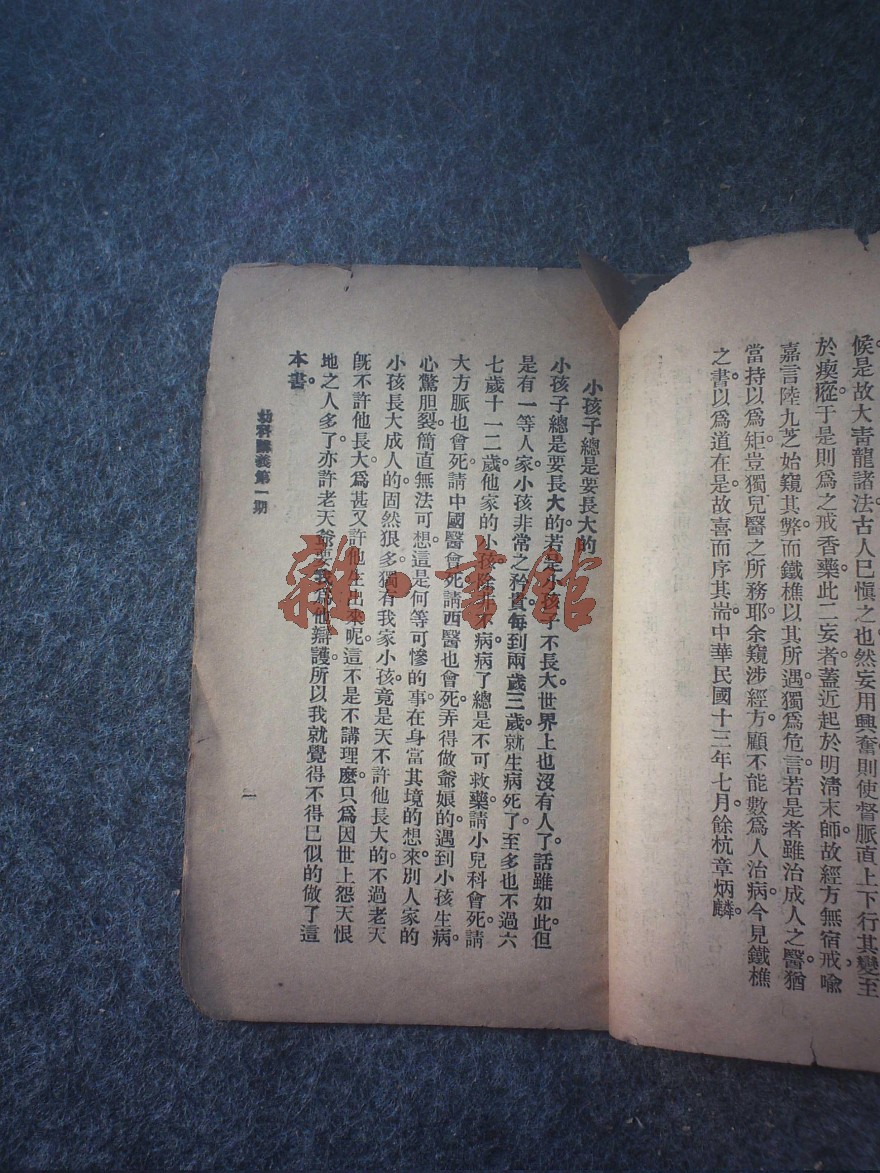 候是故大靑龍諸法古人已愼之也然妄用興奮則使督脈直上下行其變至
於瘈瘲于是則爲之戒香藥此二妄者蓋近起於明淸末師故經方無宿戒喩
嘉言陸九芝始窺其弊而鐵樵以其所遇獨爲危言若是者雖治成人之醫猶
當持以爲矩豈獨兒醫之所務耶余窺涉經方顧不能數爲人治病今見鐵樵
之書以爲道在是故喜而序其耑中華民國十三年七月餘杭章炳麟
小孩子總是要長大的
小孩子總是要長大的。若是小孩子不長大世界上也沒有人了。話雖如此但
是有一等人家小孩非常之矜貴每到兩歲三歲就生病死了至多也不過六
七歲十一二歲他家的小孩除非不病病了總是不可救藥請小兒科會死請
大方脈也會死請中國醫會死請西醫也會死。弄得做爺娘的遇到小孩生病。
心驚胆裂。簡直無法可想這是何等可慘的事在身當其境的想來別人家的
小孩長大成人的固然狠多獨有我家小孩竟是天不許他長大的不過老天
旣不許他長大爲甚又許他生出來呢。這不是不講理麽只爲因世上怨天恨
地之人多了。亦許老天爺要我爲他辯護。所以我就覺得不得已似的做了這
本書。
幼科講義第一期
一
雜·書館